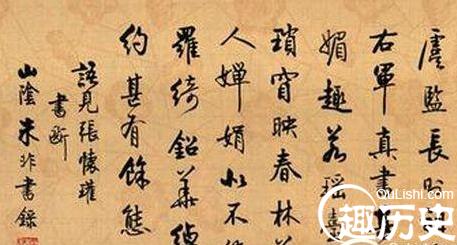 虞監長於
右軍真書
媚趣若瑤臺
瑣窗映春林
人嬋娟似不
羅綺鉛華綽
約甚有餘態
語見張懷瓘
書斷
山陰朱非書錄
QuLiShi.com
趣历史